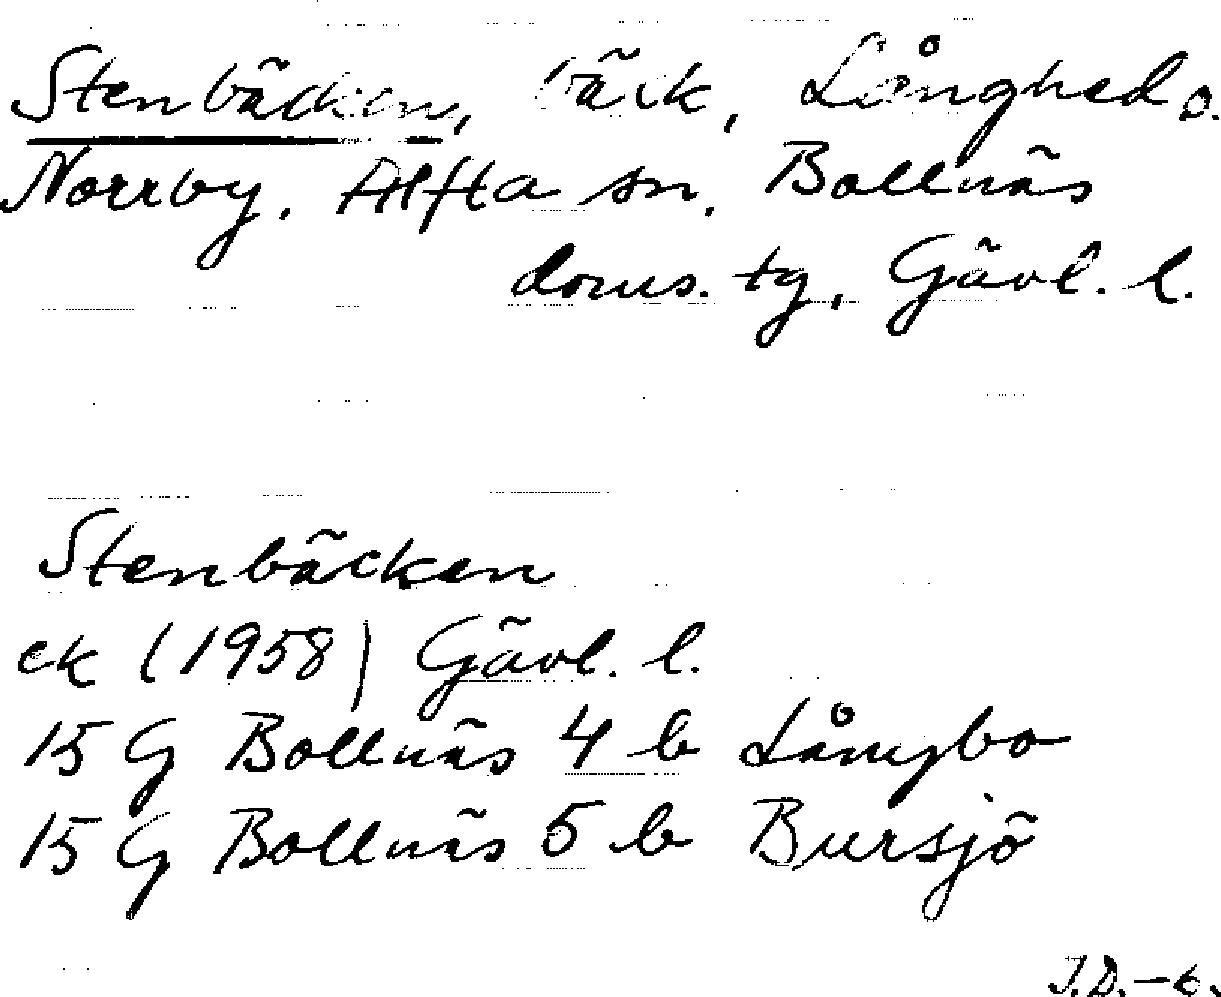 Stenbäcken, bäck, Långhed o.
Norrby. Alfta sn, Bollnäs
doms. tg, Gävl. l.
Stenbäcken
ek (1958) Gävl. l.
15 G Bollnäs 4 b Långbo
15 G Bollnäs 5 b Bursjö
J.D.-b.